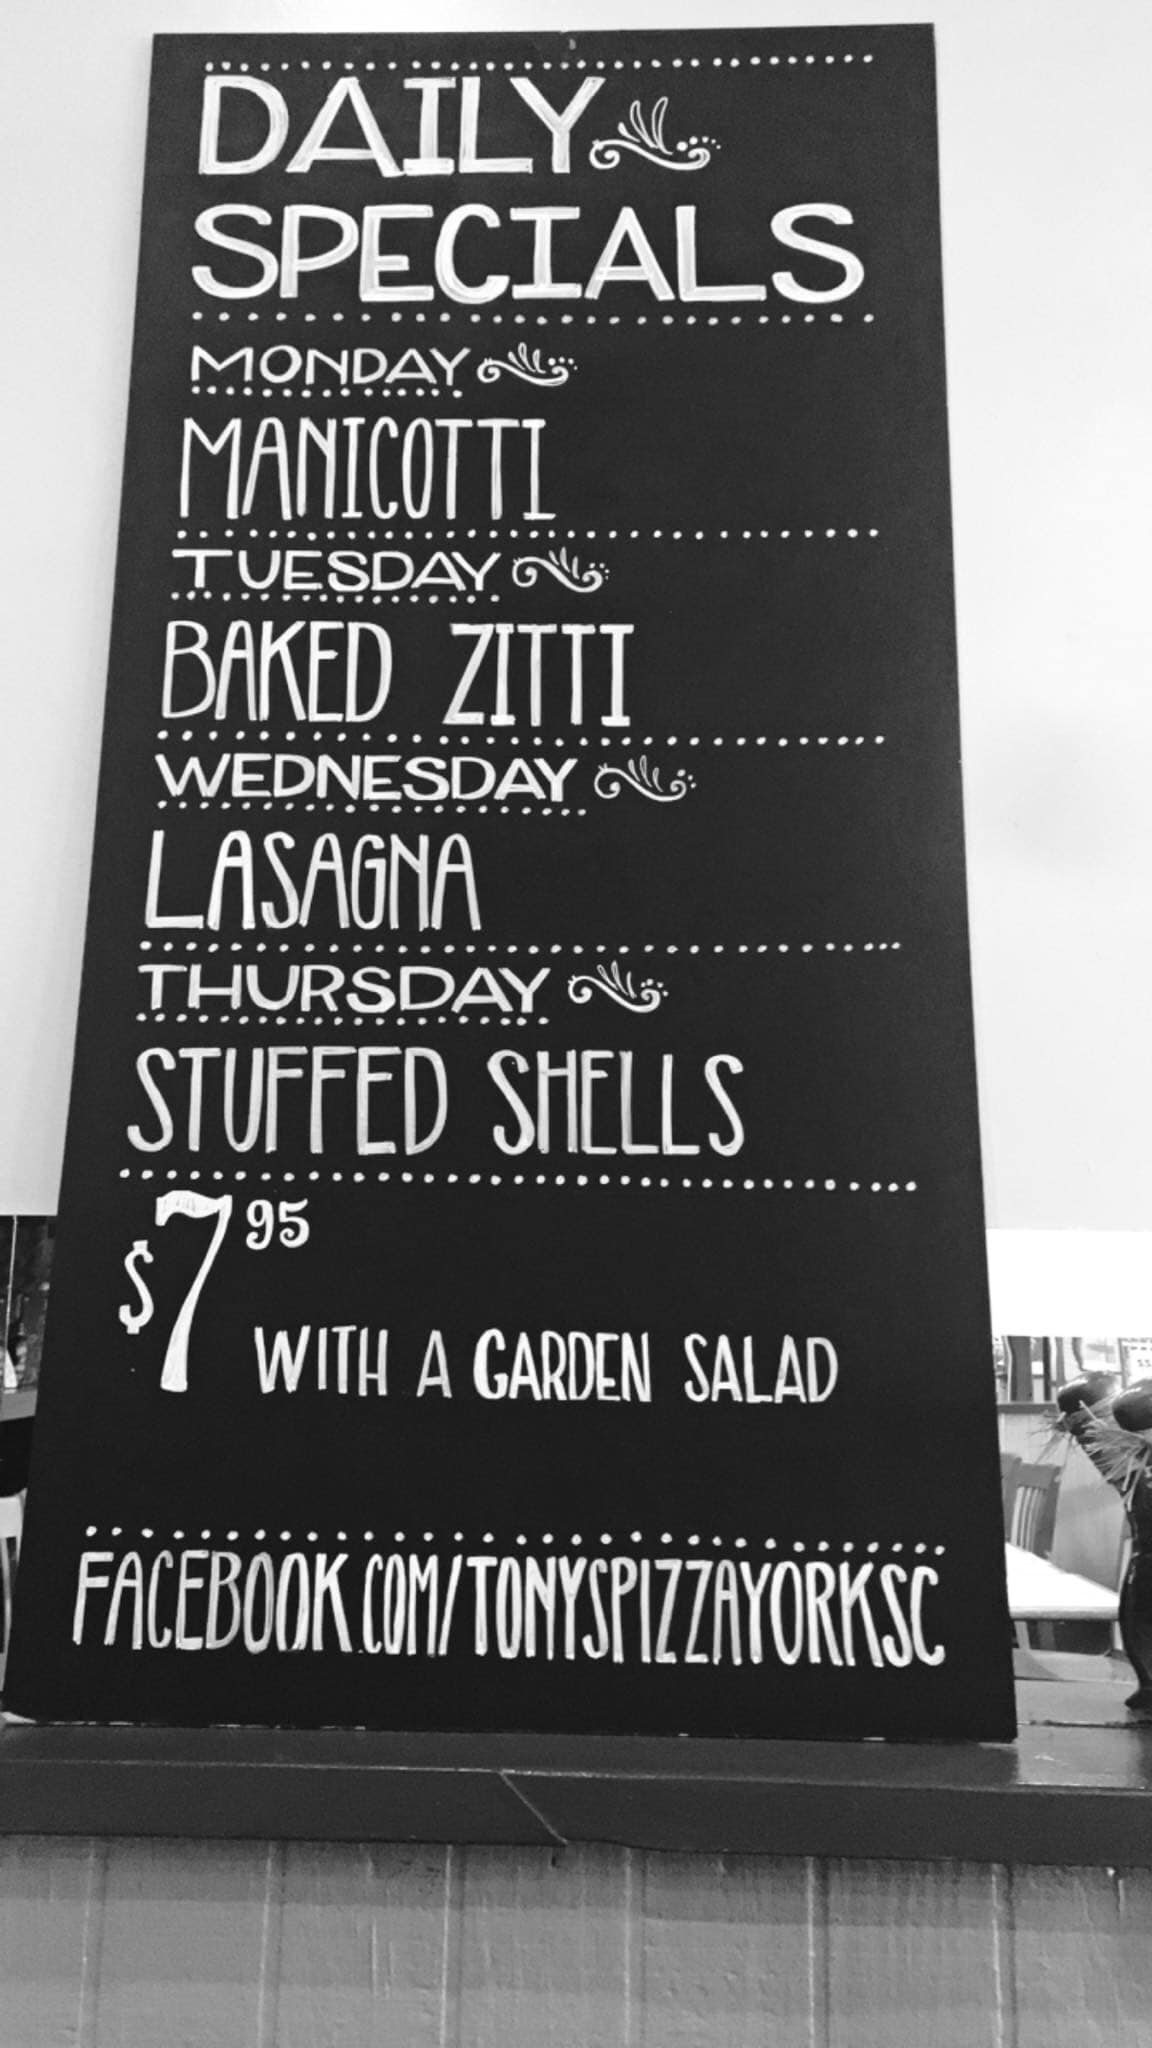 DAILY
SPECIALS
MONDAY
MANICOTTI
TUESDAY
BAKED ZITTI
WEDNESDAY
LASAGNA
THURSDAY
STUFFED SHELLS
$7 95
WITH A GARDEN SALAD
FACEBOOK.COM/TONYSPIZZAYORKSC